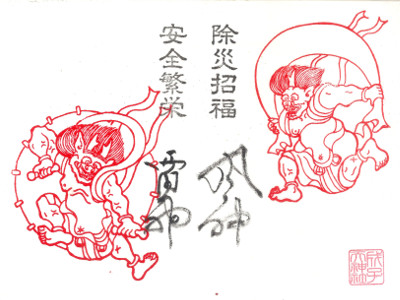 除災招福
安全繁栄
风神
雷神